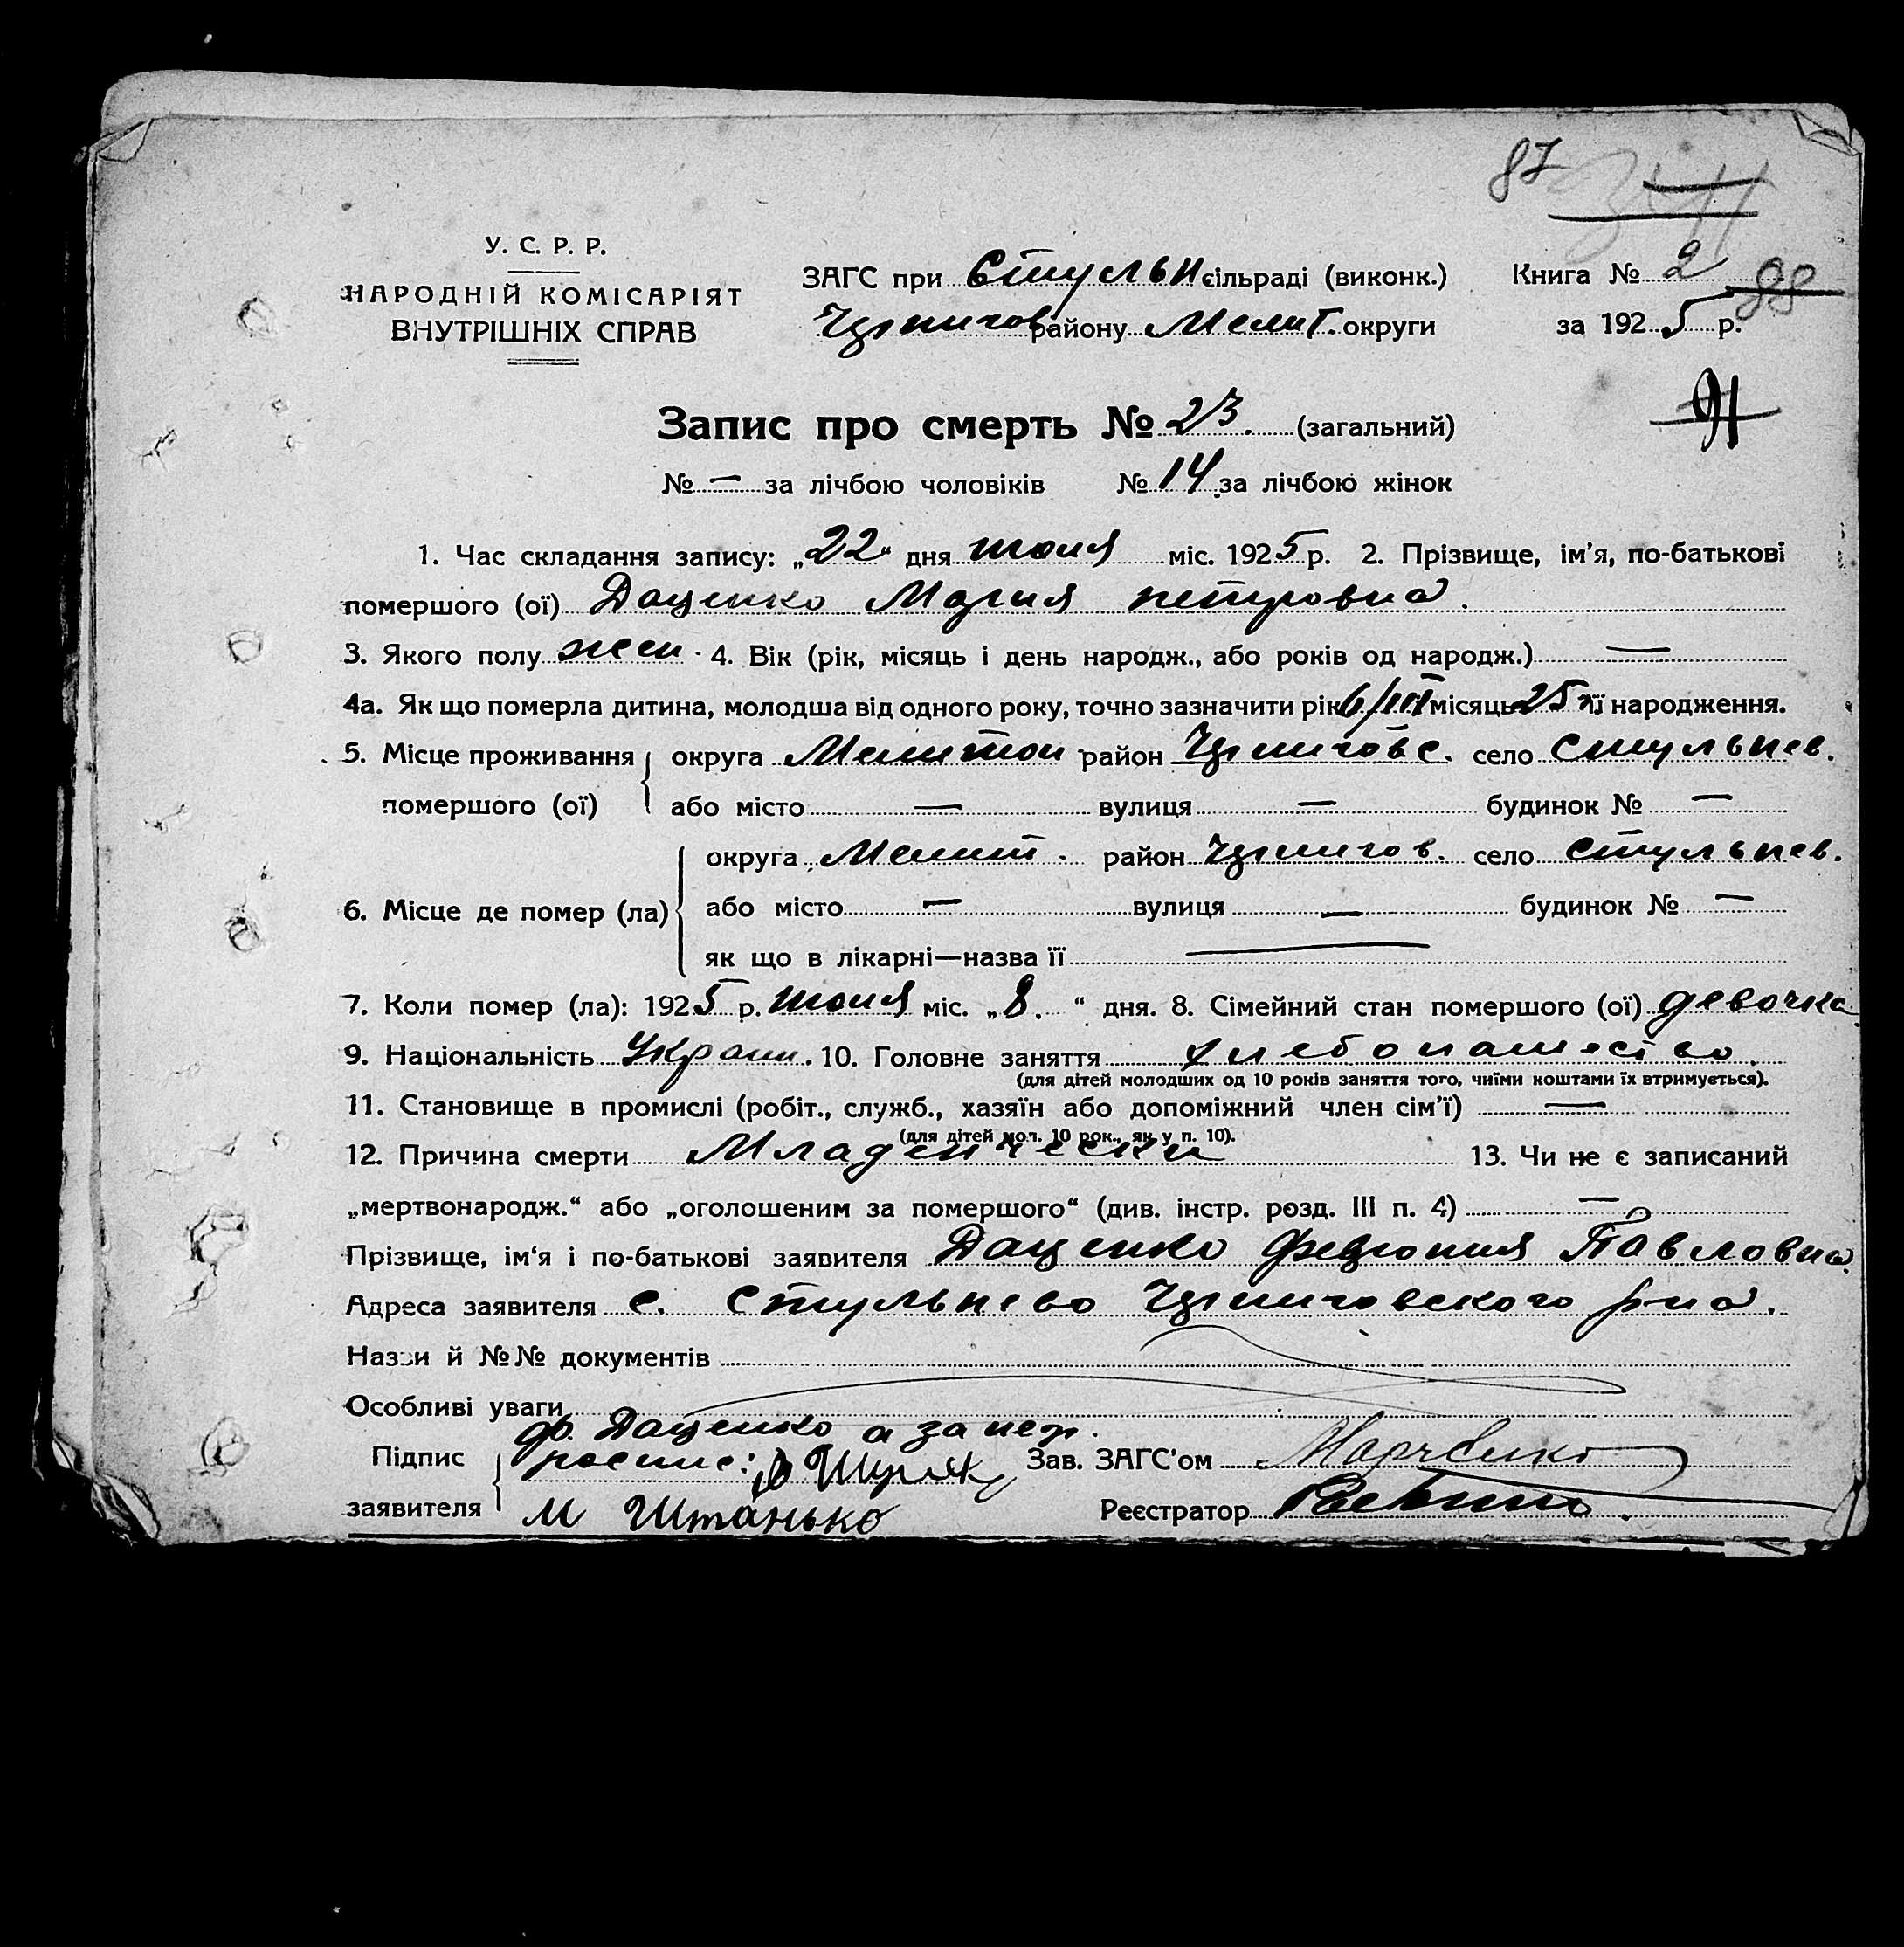 87
У. С. Р. Р.
НАРОДНІЙ КОМІСАРІЯТ
ВНУТРІШНІХ СПРАВ
ЗАГС при Стульн сільраді (виконк.) Книга № 2 88
Чернигов району Мелит. округи за 1925 р.
91
Запис про смерть № 23. (загальний)
№ — за лічбою чоловіків № 14 за лічбою жінок
1. Час складання запису: „22“ дня июля міс. 1925 р. 2. Прізвище, ім'я, по-батькові
помершого (ої) Даценко Мария петровна.
3. Якого полу жен. 4. Вік (рік, місяць і день народж., або років од народж.) —
4а. Як що померла дитина, молодша від одного року, точно зазначити рік 6/III місяць 25 її народження.
5. Місце проживання округа Мелитоп район Черниговс. село Стульнев.
помершого (ої) або місто — вулиця — будинок № —
округа Мелит. район Чернигов. село Стульнев.
6. Місце де помер (ла) або місто — вулиця — будинок № —
як що в лікарні—назва її —
7. Коли помер (ла): 1925 р. июля міс. „8.“ дня. 8. Сімейний стан помершого (ої) девочка
9. Національність Украин. 10. Головне заняття хлебопашество.
(для дітей молодших од 10 років заняття того, чиїми коштами їх втримується).
11. Становище в промислі (робіт., служб., хазяїн або допоміжний член сім'ї) —
(для дітей мол. 10 рок., як у п. 10).
12. Причина смерти Младенчески 13. Чи не є записаний
„мертвонародж.“ або „оголошеним за помершого“ (див. інстр. розд. III п. 4) —
Прізвище, ім'я і по-батькові заявителя Даценко Феврония Павловна.
Адреса заявителя с. Стульнево Черниговского р-на.
Назви й №№ документів
Особливі уваги
ф. Даценко а за нер.
Підпис роспис: Зав. ЗАГС'ом Марченко
заявителя М Штанько Реєстратор